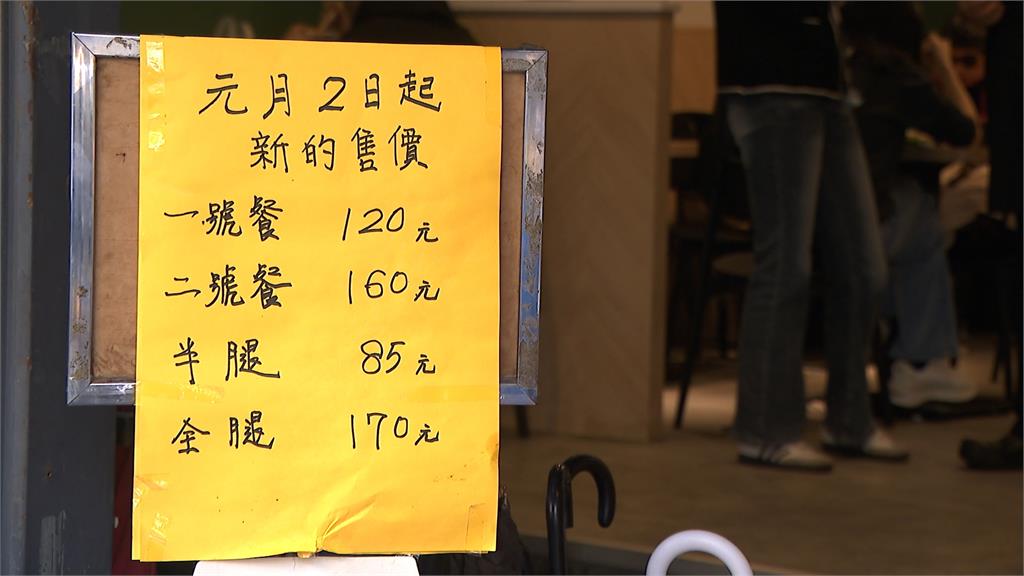 元月2日起
新的售價
一號餐 120元
二號餐 160元
半腿 85元
全腿 170元